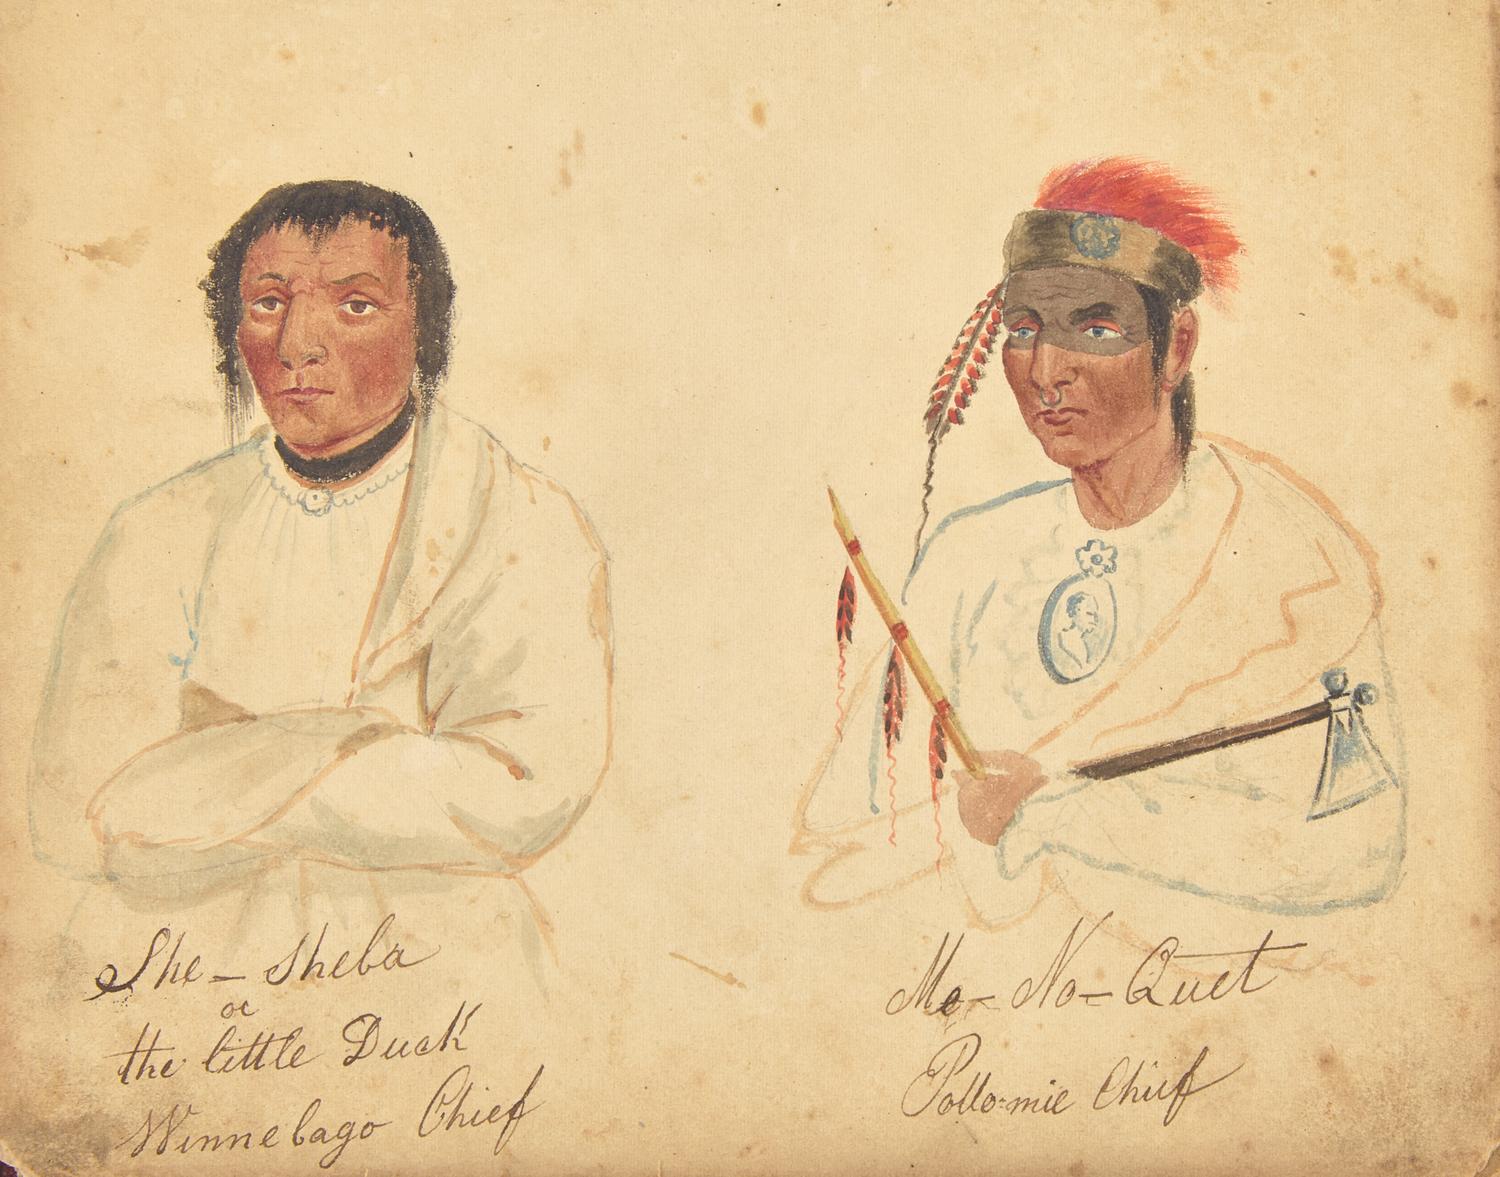 She - Sheba
or
the little Duck
Winnebago Chief
Mo - No - Quet
Potto=mie Chief